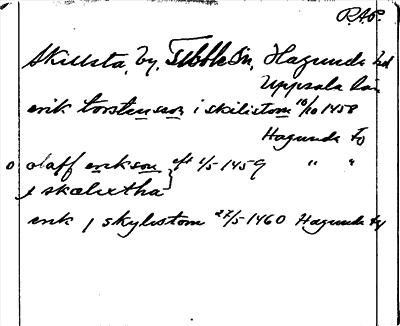 R.A.P.
Skillsta, by, Tibble sn, Hagunda hd
Uppsala län
erik torstensson i skilistom 10/10 1458
Hagunda fg
o olaff erikson eft 1/5-1459 " "
j skælixtha
erik j skylistom 27/5-1460 Hagunda fg